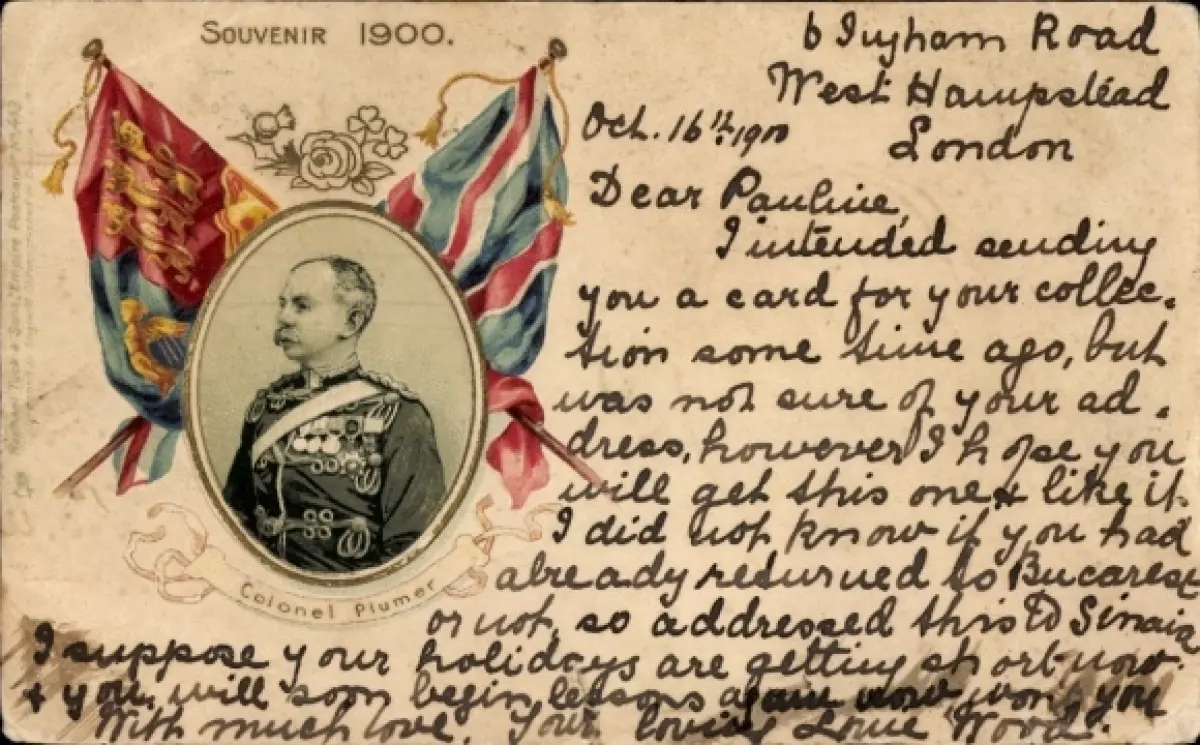 SOUVENIR 1900.
6 Ingham Road
West Hampstead
London
Oct. 16th. 1900
Dear Pauline,
I intended sending
you a card for your collec-
tion some time ago, but
was not sure of your ad-
dress, however I hope you
will get this one & like it.
I did not know if you had
already returned to Bucarest
or not, so addressed this to Sinaia
I suppose your holidays are getting short now
& you will soon begin lessons again now won't you
With much love, Your loving Louie Wood.
Colonel Plumer
Raphael Tuck & Sons' "Empire" Postcard